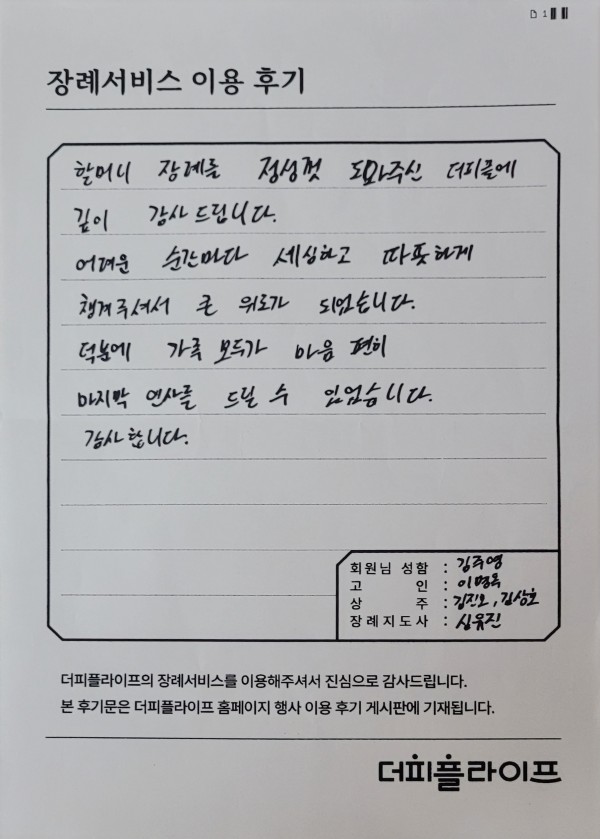 1
장례서비스 이용 후기
할머니 장례를 정성껏 도와주신 더피플에
깊이 감사 드립니다.
어려운 순간마다 세심하고 따뜻하게
챙겨주셔서 큰 위로가 되었습니다.
덕분에 가족 모두가 마음 편히
마지막 인사를 드릴 수 있었습니다.
감사합니다.
회원님 성함 : 김주영
고 인 : 이명옥
상 주 : 김진오, 김상호
장례지도사 : 심유진
더피플라이프의 장례서비스를 이용해주셔서 진심으로 감사드립니다.
본 후기문은 더피플라이프 홈페이지 행사 이용 후기 게시판에 기재됩니다.
더피플라이프